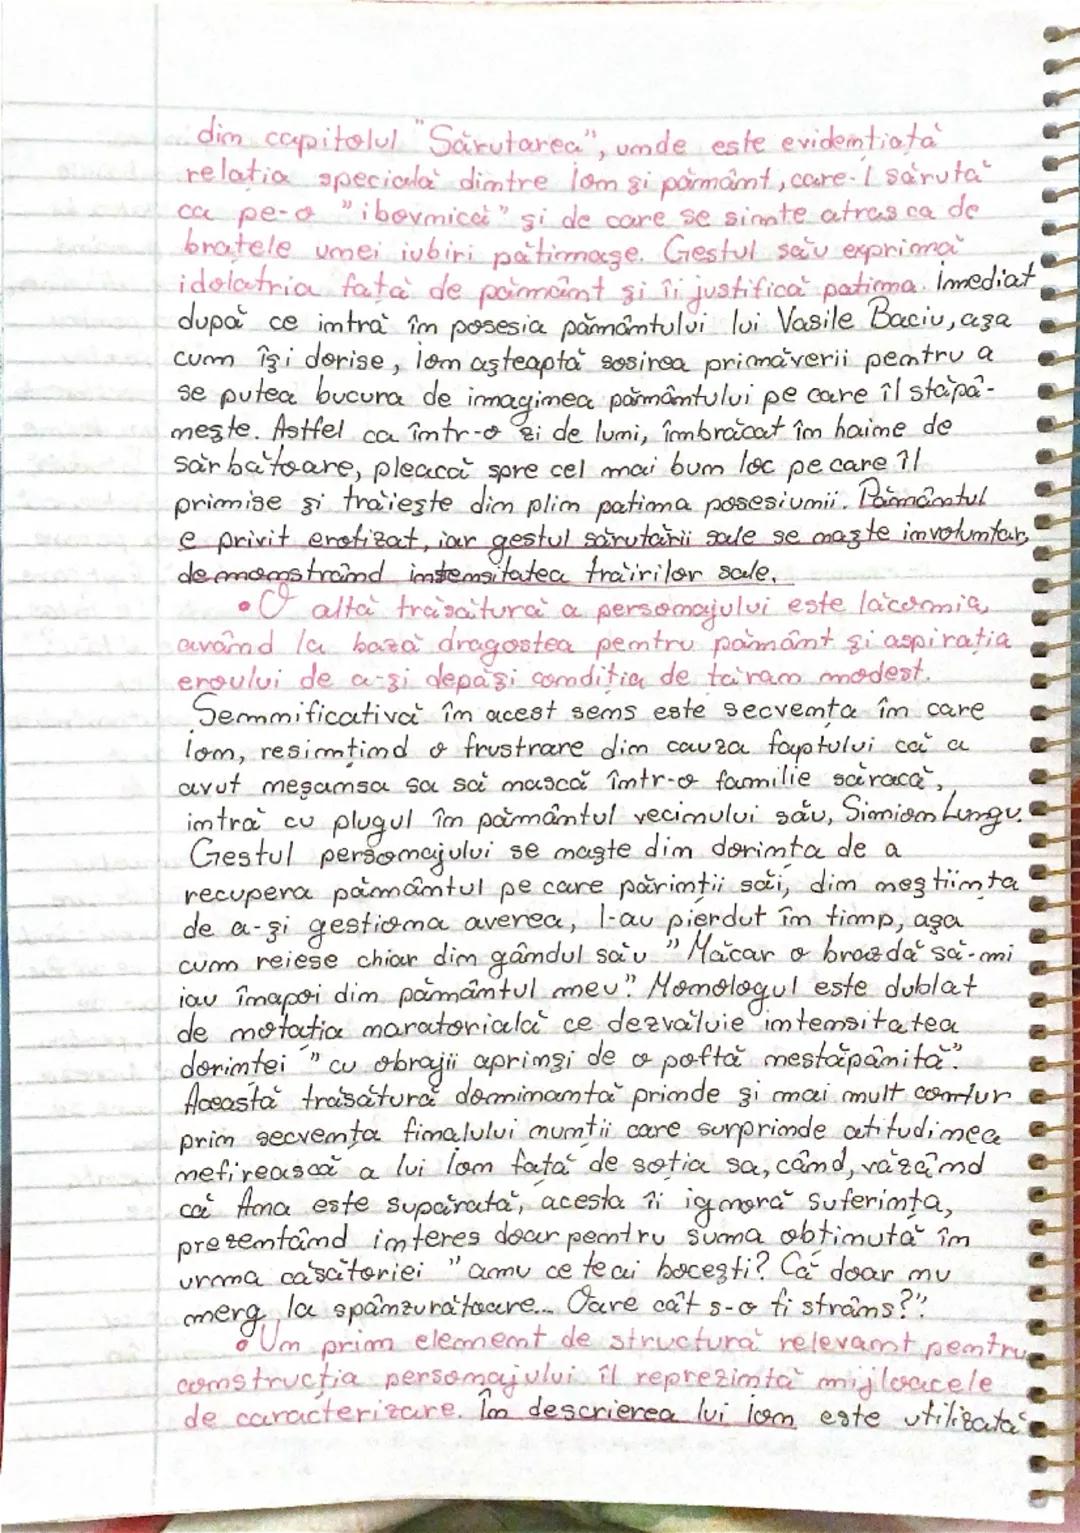 din capitolul "Sărutarea", unde este evidențiată
relația specială dintre Ion și pământ, care-l sărută
ca pe-o "ibovnică" și de care se simte atras ca de
brațele unei iubiri pătimașe. Gestul său exprimă
idolatria față de pământ și îi justifică patima. Imediat
după ce intră în posesia pământului lui Vasile Baciu, așa
cum își dorise, Ion așteaptă sosirea primăverii pentru a
se putea bucura de imaginea pământului pe care îl stăpâ-
nește. Astfel ca într-o zi de luni, îmbrăcat în haine de
sărbătoare, pleacă spre cel mai bun loc pe care îl
primise și trăiește din plin patima posesiunii. Pământul
e privit erotizat, iar gestul sărutării sale se naște involuntar,
demonstrând intensitatea trăirilor sale.
• O altă trăsătură a personajului este lăcomia,
având la bază dragostea pentru pământ și aspirația
eroului de a-și depăși condiția de țăran modest.
Semnificativă în acest sens este secvența în care
Ion, resimțind o frustrare din cauza faptului că a
avut neșansa sa să nască într-o familie săracă,
intră cu plugul în pământul vecinului său, Simion Lungu.
Gestul personajului se naște din dorința de a
recupera pământul pe care părinții săi, din neștiința
de a-și gestiona averea, l-au pierdut în timp, așa
cum reiese chiar din gândul său "Măcar o brazdă să-mi
iau înapoi din pământul meu". Monologul este dublat
de notația naratorială ce dezvăluie intensitatea
dorinței "cu obrajii aprinși de o poftă nestăpânită".
Această trăsătură dominantă prinde și mai mult contur
prin secvența finalului nunții care surprinde atitudinea
nefirească a lui Ion față de soția sa, când, văzând
că Ana este supărată, acesta îi ignoră suferința,
prezentând interes doar pentru suma obținută în
urma căsătoriei "amu ce te ai bocești? Că doar nu
merg la spânzurătoare... Oare cât s-o fi strâns?".
• Un prim element de structură relevant pentru
construcția personajului îl reprezintă mijloacele
de caracterizare. În descrierea lui Ion este utilizată